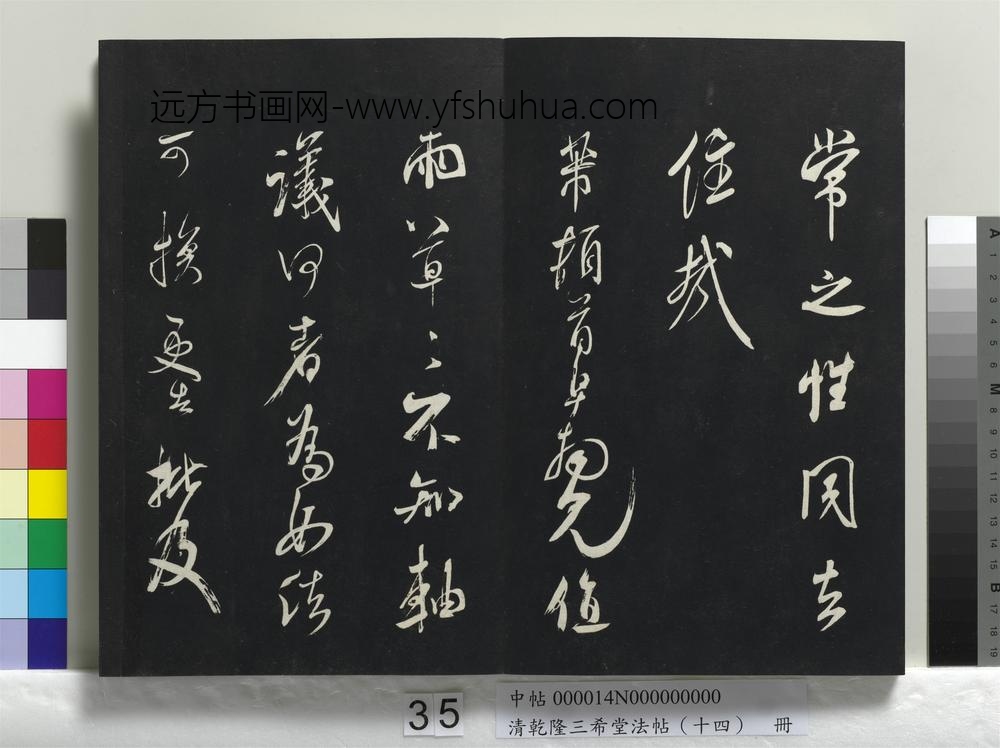 远方书画网-www.yfshuhua.com
常之性同去
住哉
芾頓首早拋見值
雨草々不知軸
議何者為如法
可換更告批及
35
中帖 000014N000000000
清乾隆三希堂法帖（十四） 冊
A 1 2 3 4 5 6 M 8 9 10 11 12 13 14 15 B 17 18 19